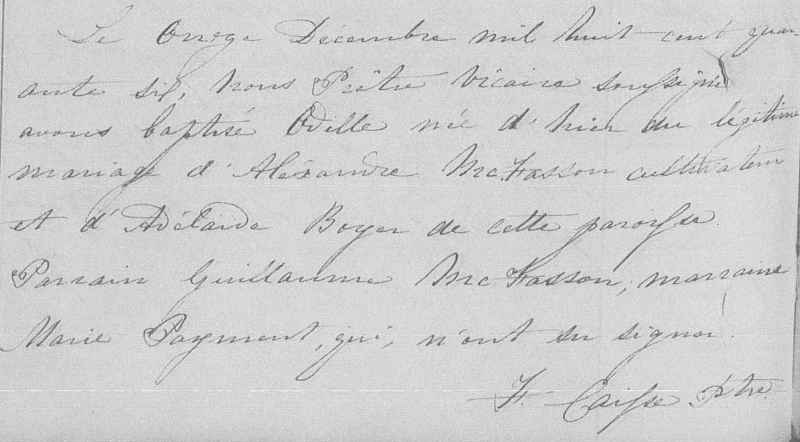 Le Onze Décembre mil huit cent quar
ante six, Nous Prêtre Vicaire soussigné
avons baptisé Odille née d'hier du légitime
mariage d'Alexandre McFasson cultivateur
et d'Adélaide Boyer de cette paroisse.
Parrain Guillaume McFasson, marraine
Marie Payment, qui, n'ont su signer.
F. Caisse Ptre.